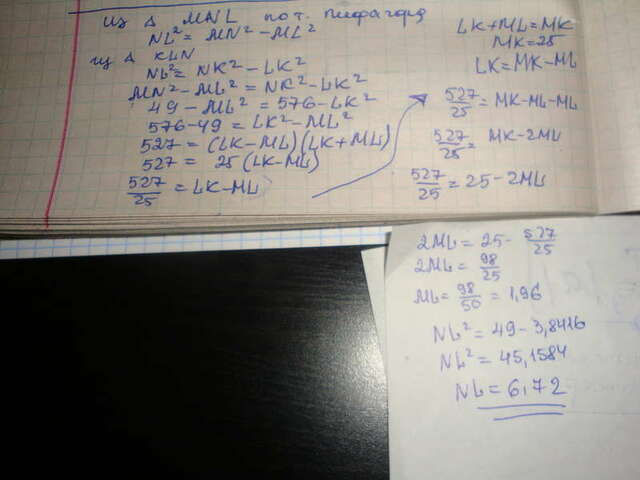 Из Δ MNL по т. Пифагора
NL² = MN² - ML²
из Δ KLN
NL² = NK² - LK²
MN² - ML² = NK² - LK²
49 - ML² = 576 - LK²
576 - 49 = LK² - ML²
527 = (LK - ML)(LK + ML)
527 = 25 (LK - ML)
527/25 = LK - ML
LK + ML = MK
MK = 25
LK = MK - ML
527/25 = MK - ML - ML
527/25 = MK - 2ML
527/25 = 25 - 2ML
2ML = 25 - 527/25
2ML = 98/25
ML = 98/50 = 1,96
NL² = 49 - 3,8416
NL² = 45,1584
NL = 6,72